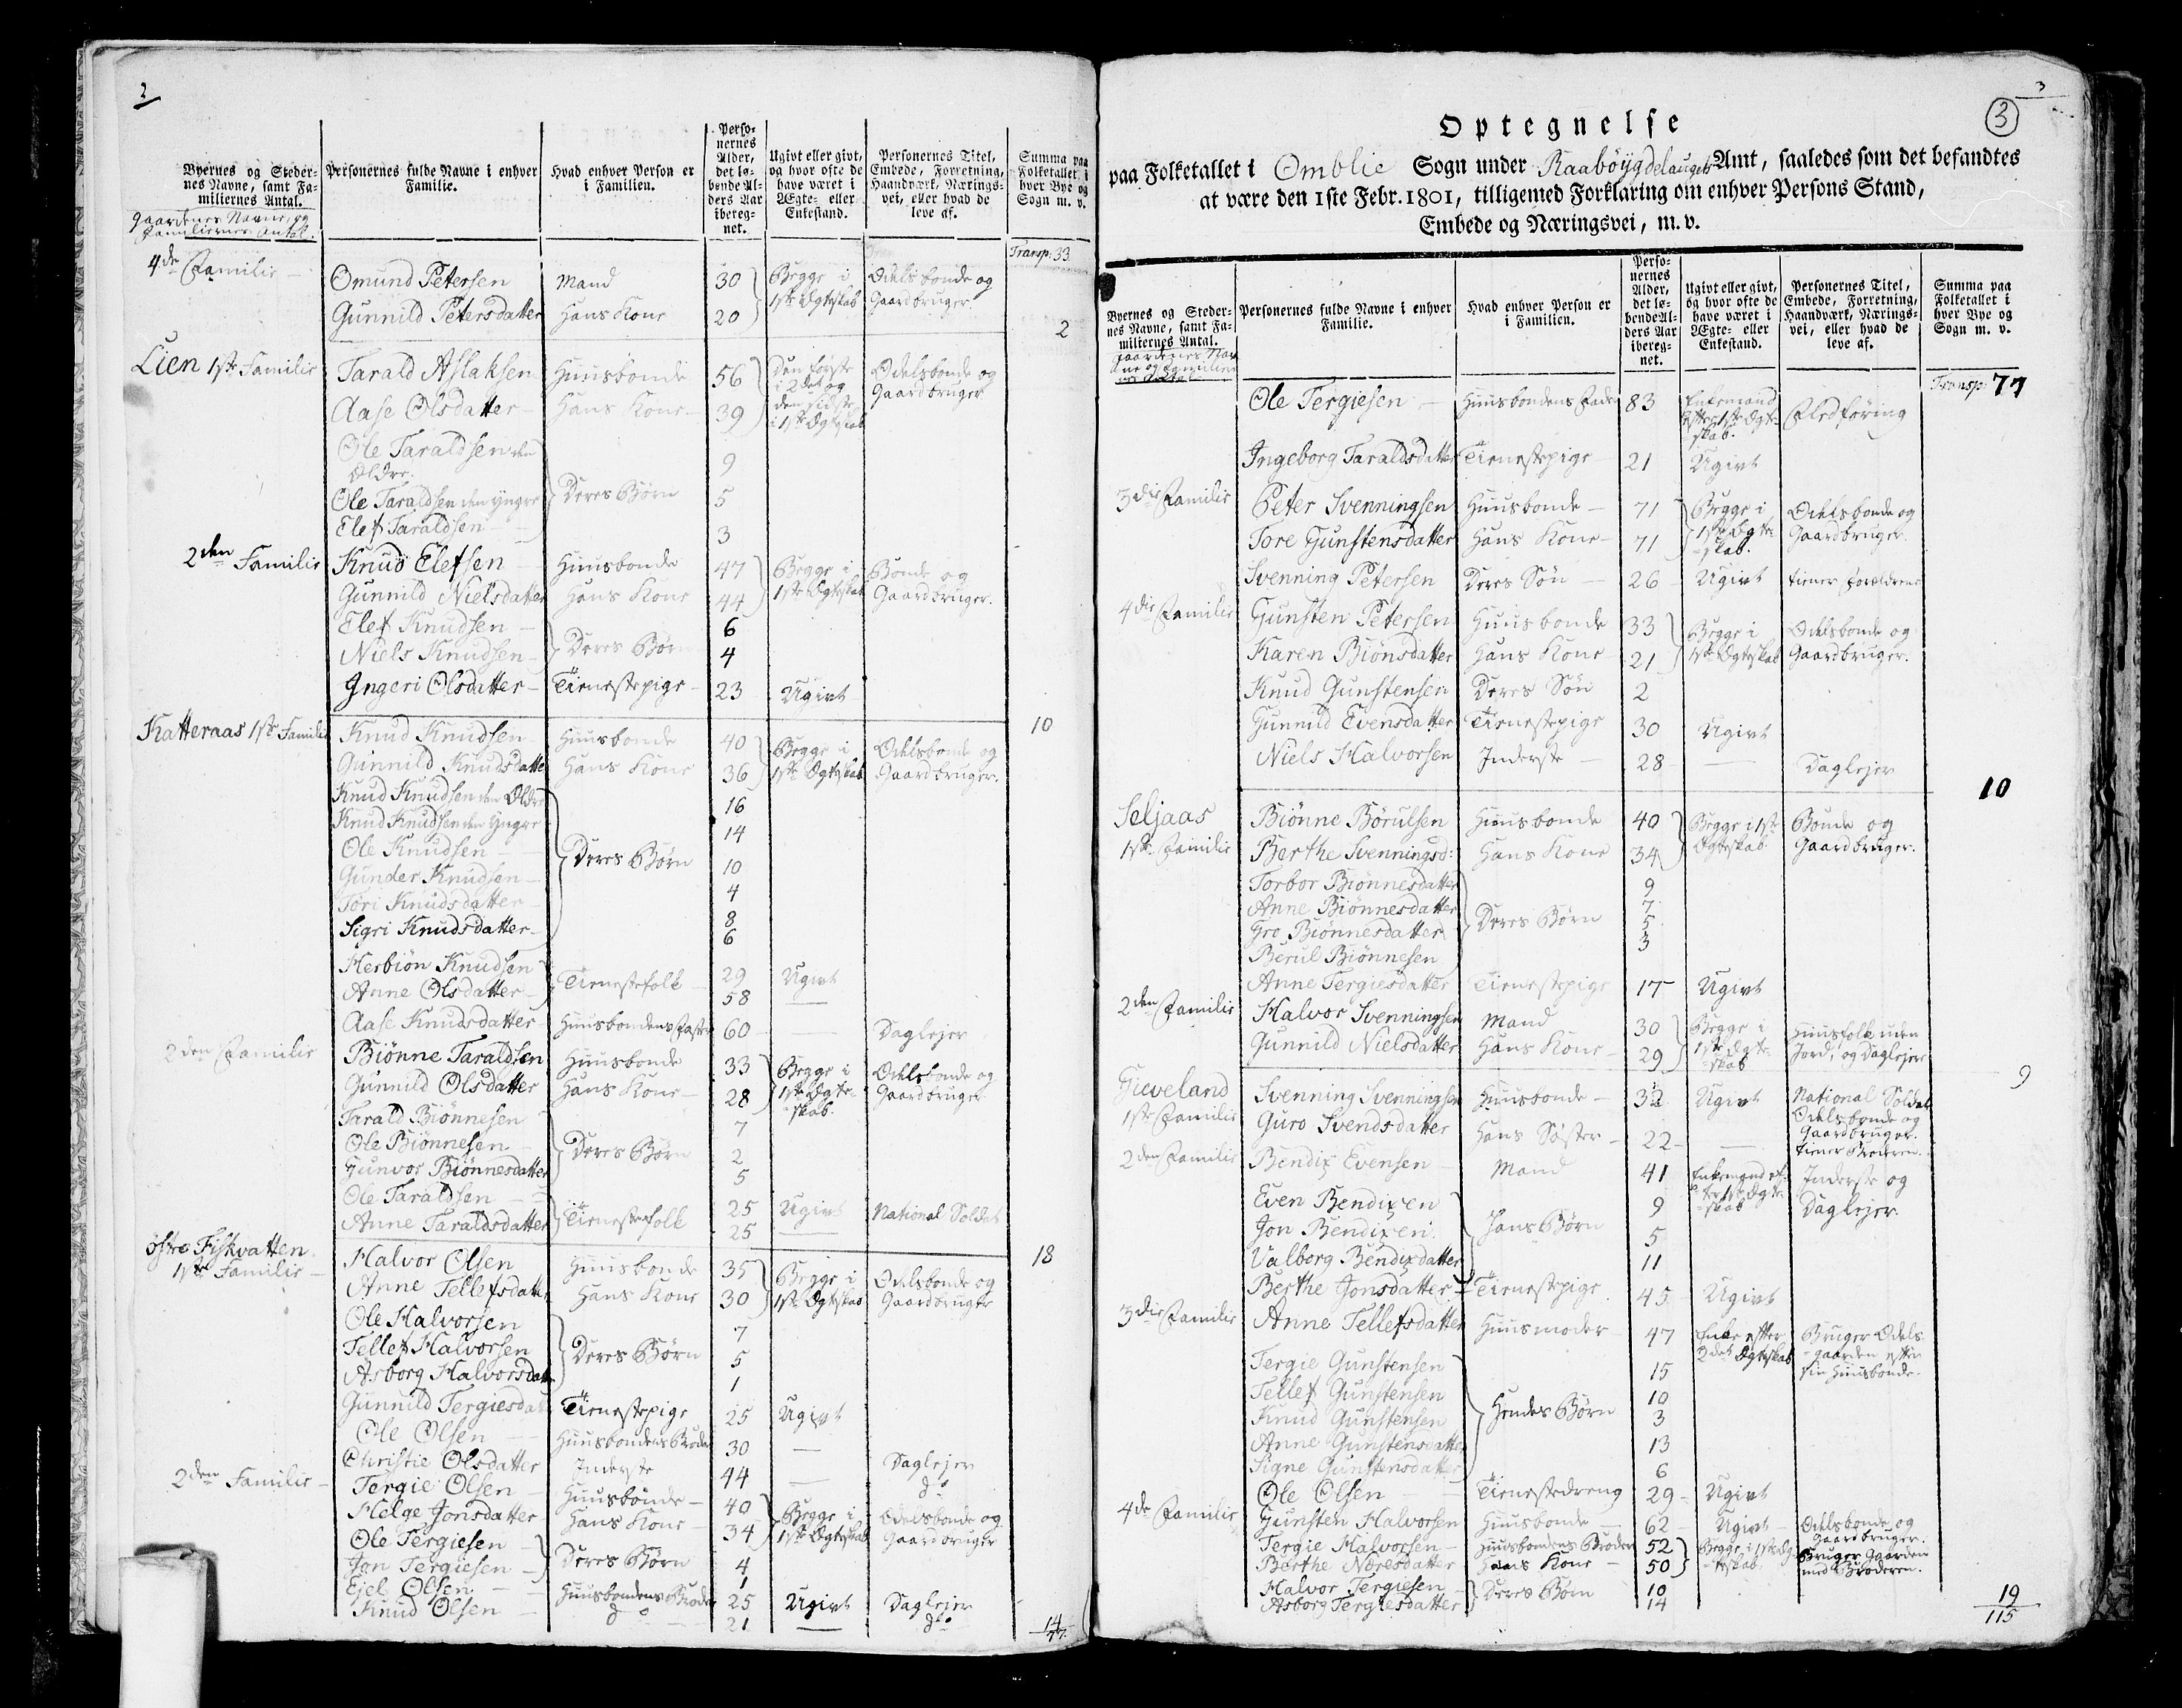 2
Byernes og Steder-
nes Navne, samt Fa-
miliernes Antal.
Gaardenes Navne og
Familiernes Antal.
Personernes fulde Navne i enhver
Familie.
Hvad enhver Person er
i Familien.
Perso-
nernes
Alder,
det lø-
bende Al-
ders Aar
ibereg-
net.
Ugivt eller givt,
og hvor ofte de
have været i
Ægte- eller
Enkestand.
Personernes Titel,
Embede, Forretning,
Haandværk, Nærings-
vei, eller hvad de
leve af.
Summa paa
Folketallet i
hver Bye og
Sogn m. v.
Transp: 33
4de Familie Omund Petersen Mand 30 Begge i 1ste Ægteskab Odelsbonde og Gaardbruger
Gunnild Petersdatter Hans Kone 20
2
Lien 1ste Familie Tarald Aslaksen Huusbonde 56 Den første i 2det og den sidste i 1ste Ægteskab Odelsbonde og Gaardbruger
Aase Olsdatter Hans Kone 39
Ole Taraldsen den Ældre 9
Ole Taraldsen den Yngre Deres Børn 5
Elef Taraldsen 3
2den Familie Knud Elefsen Huusbonde 47 Begge i 1ste Ægteskab Bonde og Gaardbruger.
Gunnild Nielsdatter Hans Kone 44
Elef Knudsen 6
Niels Knudsen Deres Børn 4
Ingeri Olsdatter Tienestepige 23 Ugivt
10
Katteraas 1ste Familie Knud Knudsen Huusbonde 40 Begge i 1ste Ægteskab Odelsbonde og Gaardbruger.
Gunnild Knudsdatter Hans Kone 36
Knud Knudsen den Ældre 16
Knud Knudsen den Yngre 14
Ole Knudsen Deres Børn 10
Gunder Knudsen 4
Tori Knudsdatter 8
Sigri Knudsdatter 6
Herbiön Knudsen Tienestefolk 29 Ugivt
Anne Olsdatter 58
Aase Knudsdatter Huusbondens Faster 60 Daglejer
2den Familie Biönne Taraldsen Huusbonde 33 Begge i 1ste Ægteskab. Odelsbonde og Gaardbruger
Gunnild Olsdatter Hans Kone 28
Tarald Biönnesen 7
Ole Biönnesen Deres Børn 2
Gunvor Biönnesdatter 5
Ole Taraldsen Tienestefolk 25 Ugivt National Soldat
Anne Taraldsdatter 25
18
östre Fiskvatten 1ste Familie Halvor Olsen Huusbonde 35 Begge i 1ste Ægteskab Odelsbonde og Gaardbruger
Anne Tellefsdatter Hans Kone 30
Ole Halvorsen 7
Tellef Halvorsen Deres Børn 5
Asborg Halvorsdatter 1
Gunnild Tergiesdatter Tienestepige 25 Ugivt
Ole Olsen Huusbondens Broder 30
Christie Olsdatter Inderste 44 Daglejer
2den Familie Tergie Olsen Huusbonde 40 Begge i 1ste Ægteskab Odelsbonde og Gaardbruger
Helge Jonsdatter Hans Kone 34
Ole Tergiesen Deres Børn 4
Jon Tergiesen 1
Ejel Olsen Huusbondens Broder 25 Ugivt Daglejer
Knud Olsen do 21 do
14
77
3
3
Optegnelse
paa Folketallet i Omblie Sogn under Raabøygdelauget Amt, saaledes som det befandtes
at være den 1ste Febr. 1801, tilligemed Forklaring om enhver Persons Stand,
Embede og Næringsvei, m. v.
Byernes og Steder-
nes Navne, samt Fa-
miliernes Antal.
Personernes fulde Navne i enhver
Familie.
Hvad enhver Person er
i Familien.
Perso-
nernes
Alder,
det lø-
bende Al-
ders Aar
ibereg-
net.
Ugivt eller givt,
og hvor ofte de
have været i
Ægte- eller
Enkestand.
Personernes Titel,
Embede, Forretning,
Haandværk, Nærings-
vei, eller hvad de
leve af.
Summa paa
Folketallet i
hver Bye og
Sogn m. v.
Transp: 77
Ole Tergiesen Huusbondens Fader 83 Enkemand efter 1ste Ægteskab. Fledføring
Ingeborg Taraldsdatter Tienestepige 21 Ugivt
3die Familie Peter Svenningsen Huusbonde 71 Begge i 1ste Ægteskab. Odelsbonde og Gaardbruger.
Tore Gunstensdatter Hans Kone 71
Svenning Petersen Deres Søn 26 Ugivt tiener Forældrene
4die Familie Gunsten Petersen Huusbonde 33 Begge i 1ste Ægteskab Odelsbonde og Gaardbruger.
Karen Biönsdatter Hans Kone 21
Knud Gunstensen Deres Søn 2
Gunnild Evensdatter Tienestepige 30 Ugivt
Niels Halvorsen Inderste 28 Daglejer
10
Seljaas 1ste Familie Biönne Börulsen Huusbonde 40 Begge i 1ste Ægteskab Bonde og Gaardbruger.
Berthe Svenningsd: Hans Kone 34
Torbor Biönnesdatter 9
Anne Biönnesdatter 7
Gro Biönnesdatter Deres Børn 5
Berul Biönnesen 3
Anne Tergiesdatter Tienestepige 17 Ugivt
2den Familie Halvor Svenningsen Mand 30 Begge i 1ste Ægteskab Huusfolk uden Jord, og Daglejer
Gunnild Nielsdatter Hans Kone 29
9
Gieveland 1ste Familie Svenning Svenningsen Huusbonde 32 Ugivt National Soldat Odelsbonde og Gaardbruger.
Guro Svendsdatter Hans Søster 22 tiener Broderen.
2den Familie Bendix Evensen Mand 41 Enkemand efter 1ste Ægteskab Inderste og Daglejer
Even Bendixen 9
Jon Bendixen Hans Børn 5
Valborg Bendixdatter 11
Berthe Jonsdatter Tienestepige 45 Ugivt
3die Familie Anne Tellefsdatter Huusmoder 47 Enke efter 2det Ægteskab Bruger Odelsgaarden efter sin Huusbonde.
Tergie Gunstensen 15
Tellef Gunstensen 10
Knud Gunstensen Hendes Børn 3
Anne Gunstensdatter 13
Signe Gunstensdatter 6
Ole Olsen Tienestedreng 29 Ugivt
4de Familie Gunsten Halvorsen Huusbonde 62 Ugivt Odelsbonde og Gaardbruger.
Tergie Halvorsen Huusbondens Broder 52 Begge i 1ste Ægteskab Bruger Gaarden med Broderen.
Berthe Næresdatter Hans Kone 50
Halvor Tergiesen Deres Børn 10
Asborg Tergiesdatter 14
19
115